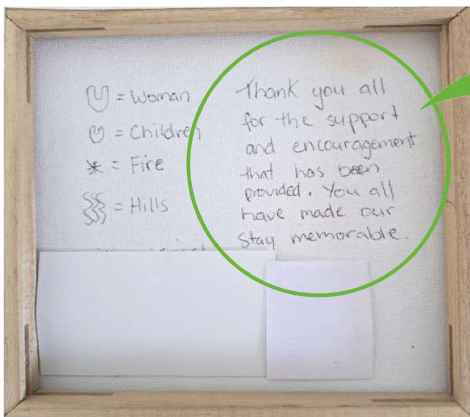 = Woman
= Children
= Fire
= Hills
Thank you all
for the support
and encouragement
that has been
provided. You all
have made our
stay memorable.